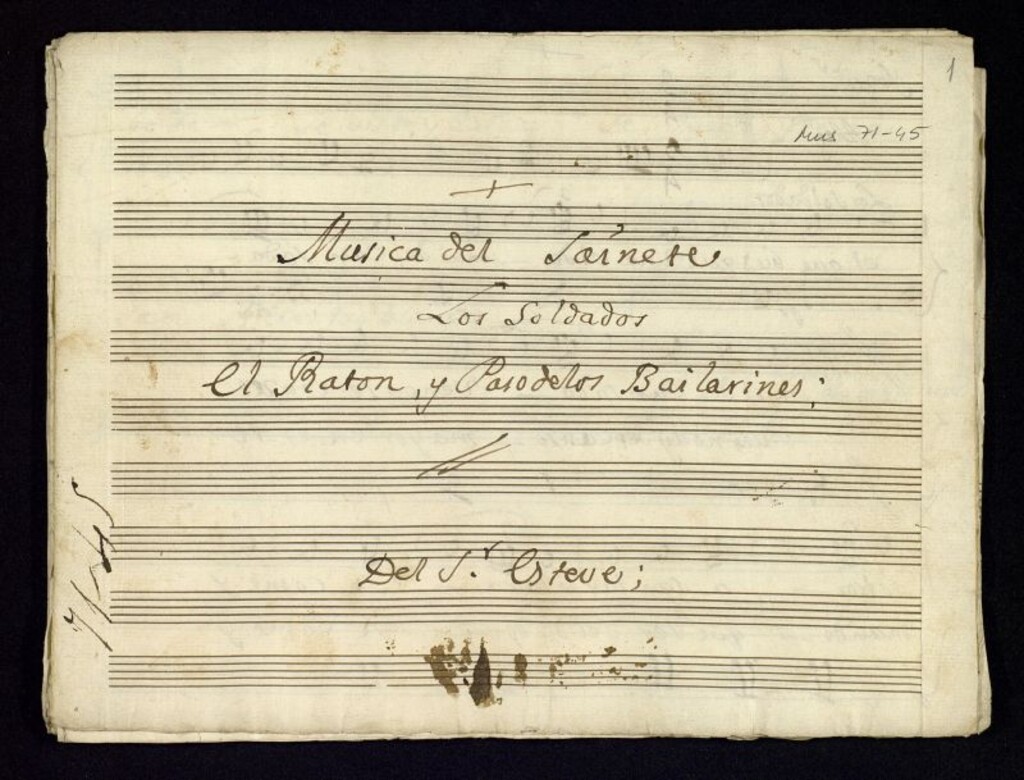 1
Mus 71-45
Musica del Saínete
Los Soldados
El Raton, y Paso de los Bailarines;
Del S.r Esteve;
71-45